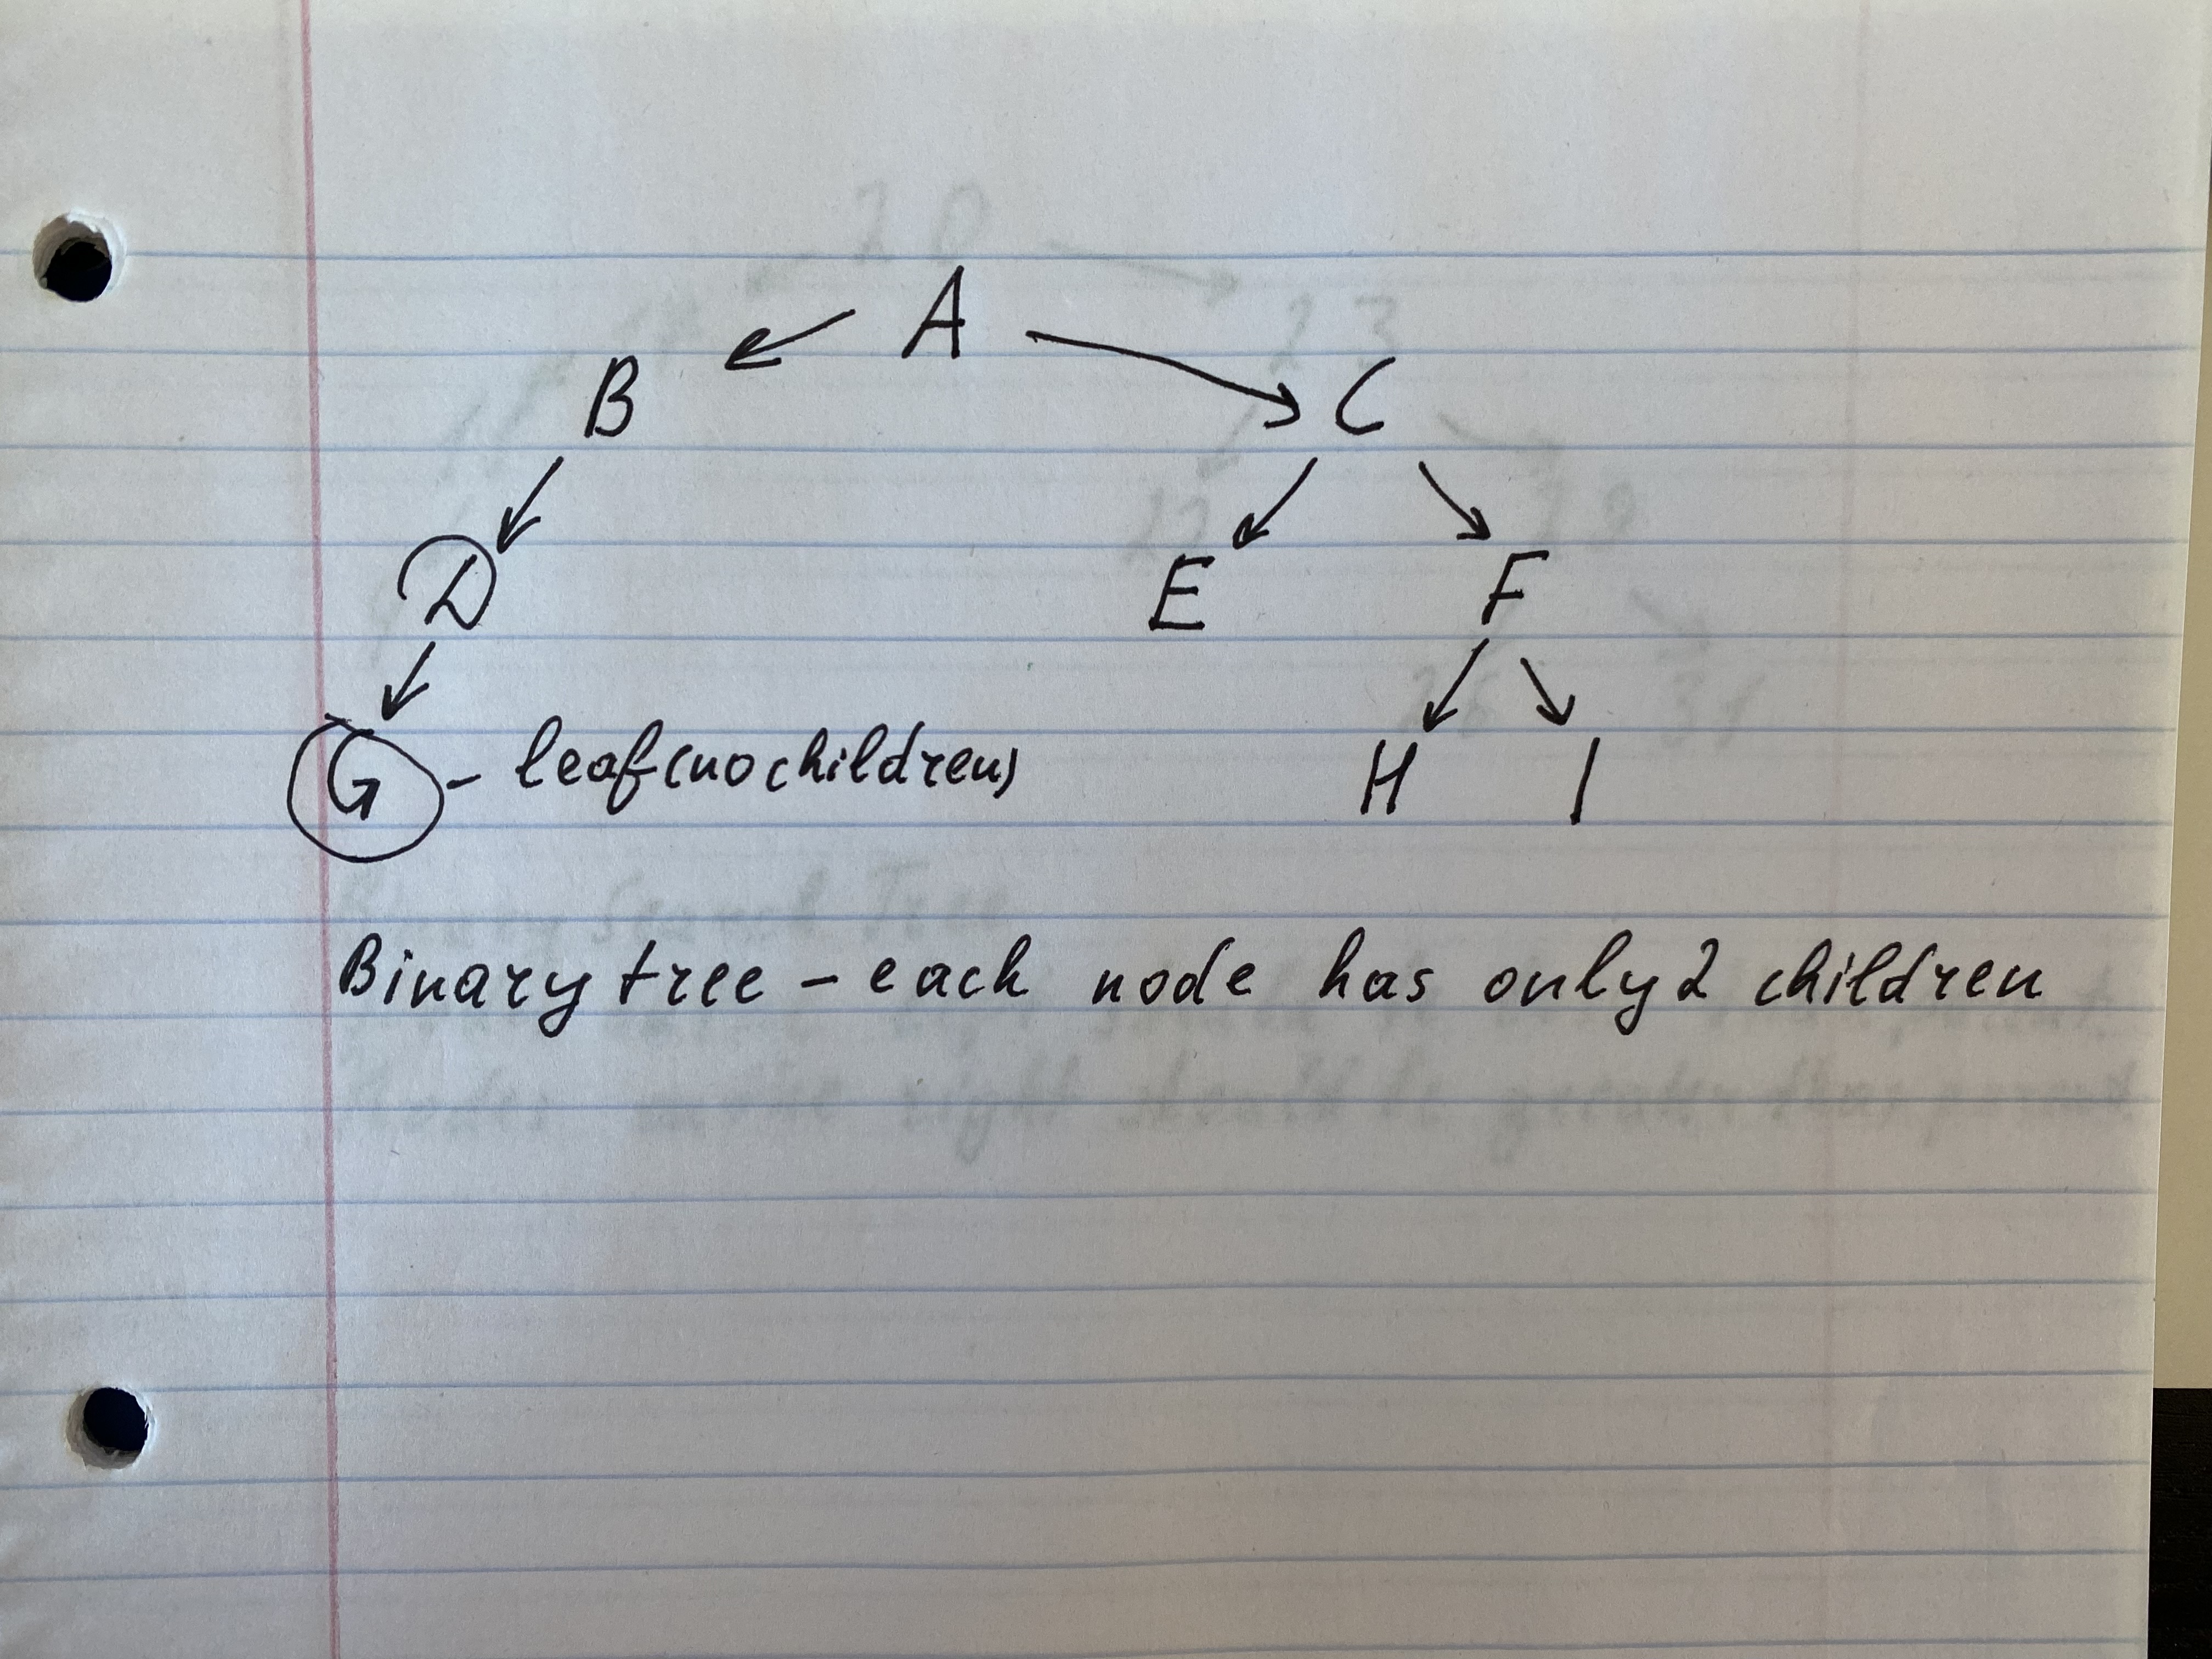 A
B C
D E F
G - leaf (no children) H I
Binary tree - each node has only 2 children